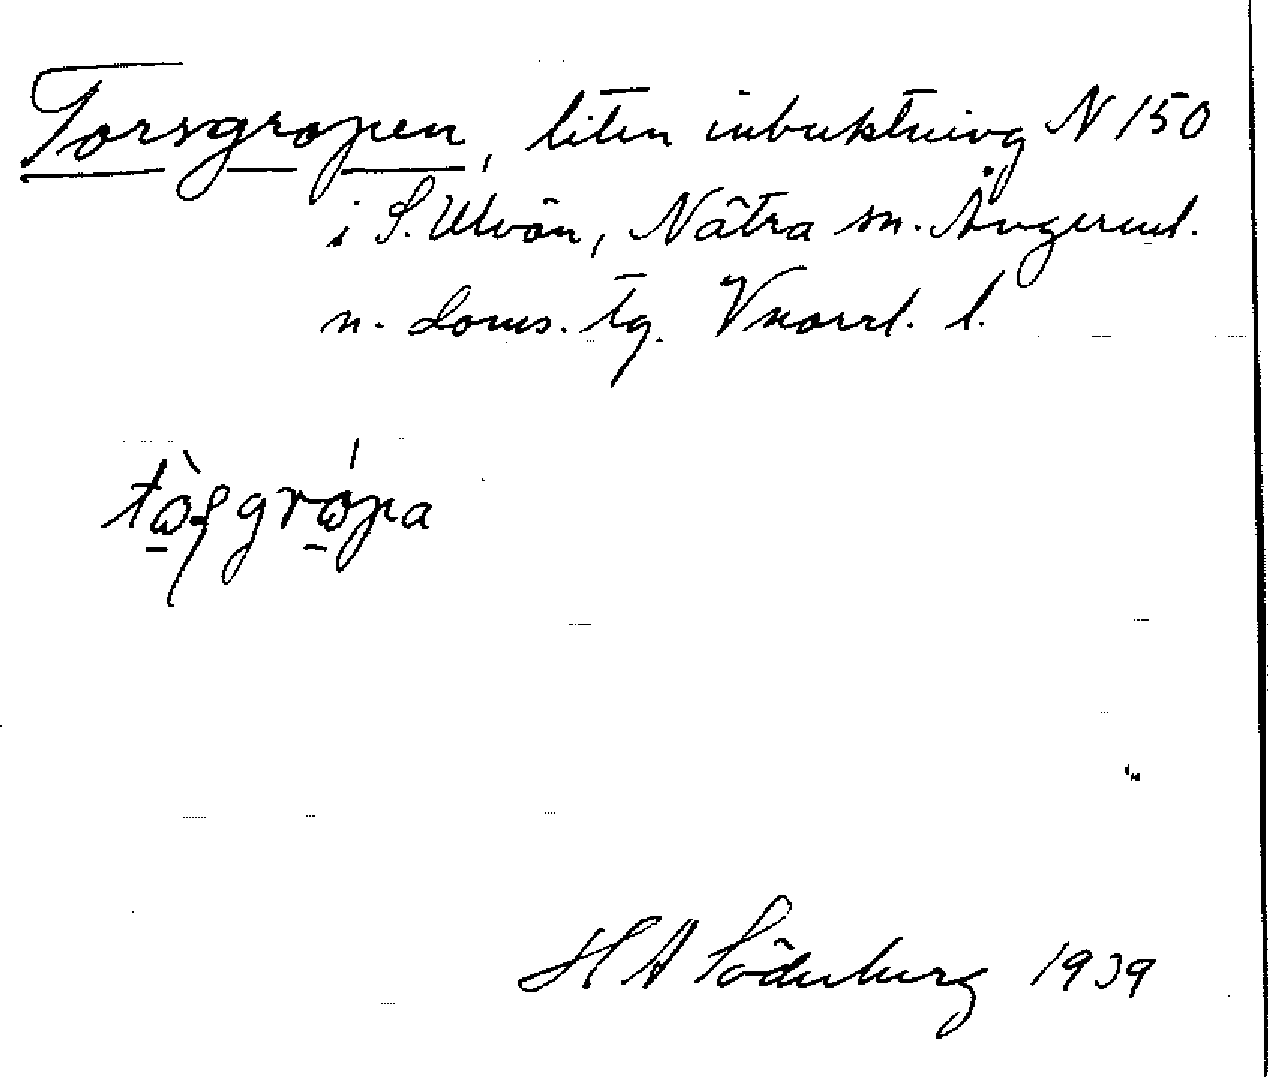 Torsgropen, liten inbuktning N 150
i S. Ulvön, Nätra sn. Ångerml.
n. doms. tg. Vnorrl. l.
H A Söderberg 1939